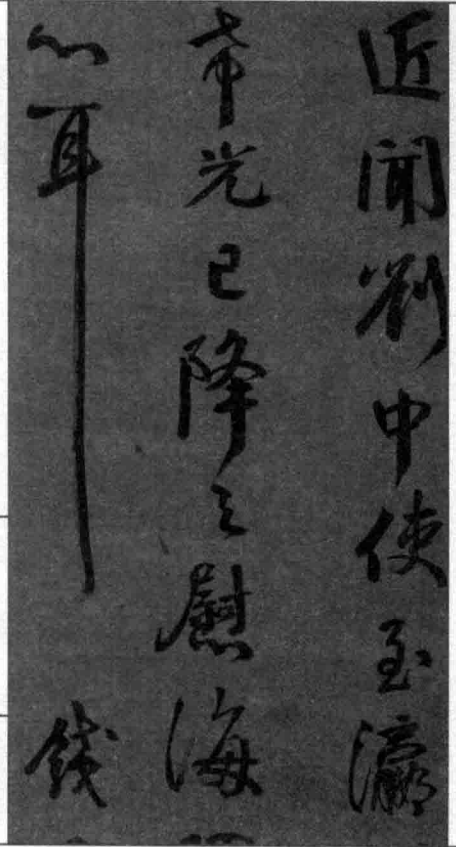 近聞劉中使至瀛
希光已降足慰海
心耳
錢